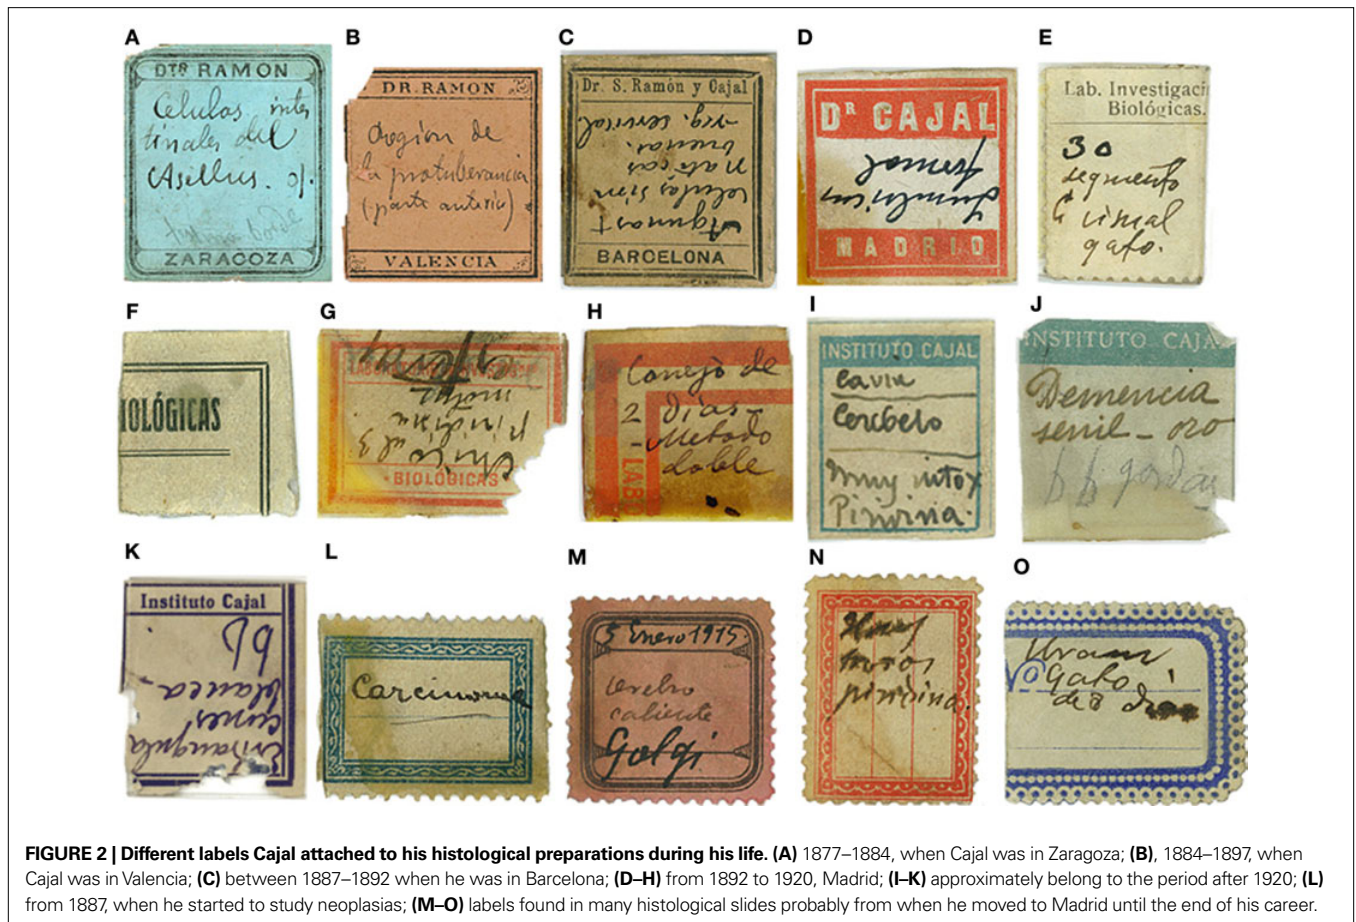 A
DTR RAMON
Celulas intes
tinales del
Asellus. of.
ZARAGOZA
B
DR. RAMON
Region de
la protuberancia
(parte anterior)
VALENCIA
C
Dr. S. Ramón y Cajal
Algunas +
celulas sim
paticas
buenas.
reg. cervical.
BARCELONA
D
DR CAJAL
formol
MADRID
E
Lab. Investigacio
Biológicas.
30
segmento
visual
gato.
F
IOLÓGICAS
G
piridina
BIOLÓGICAS
H
Conejo de
2 dias-
-Metodo
doble
LABO
I
INSTITUTO CAJAL
Cavia
Cerebelo
muy intox
Piridina.
J
INSTITUTO CAJA
Demencia
senil - oro
b b gordas
K
Instituto Cajal
bb
blanca
L
Carcinoma
M
5 Enero 1915.
cerebro
caliente
Golgi
N
piridina.
O
Uran
No Gato
de 8 dias
FIGURE 2 | Different labels Cajal attached to his histological preparations during his life. (A) 1877–1884, when Cajal was in Zaragoza; (B), 1884–1897, when
Cajal was in Valencia; (C) between 1887–1892 when he was in Barcelona; (D–H) from 1892 to 1920, Madrid; (I–K) approximately belong to the period after 1920; (L)
from 1887, when he started to study neoplasias; (M–O) labels found in many histological slides probably from when he moved to Madrid until the end of his career.